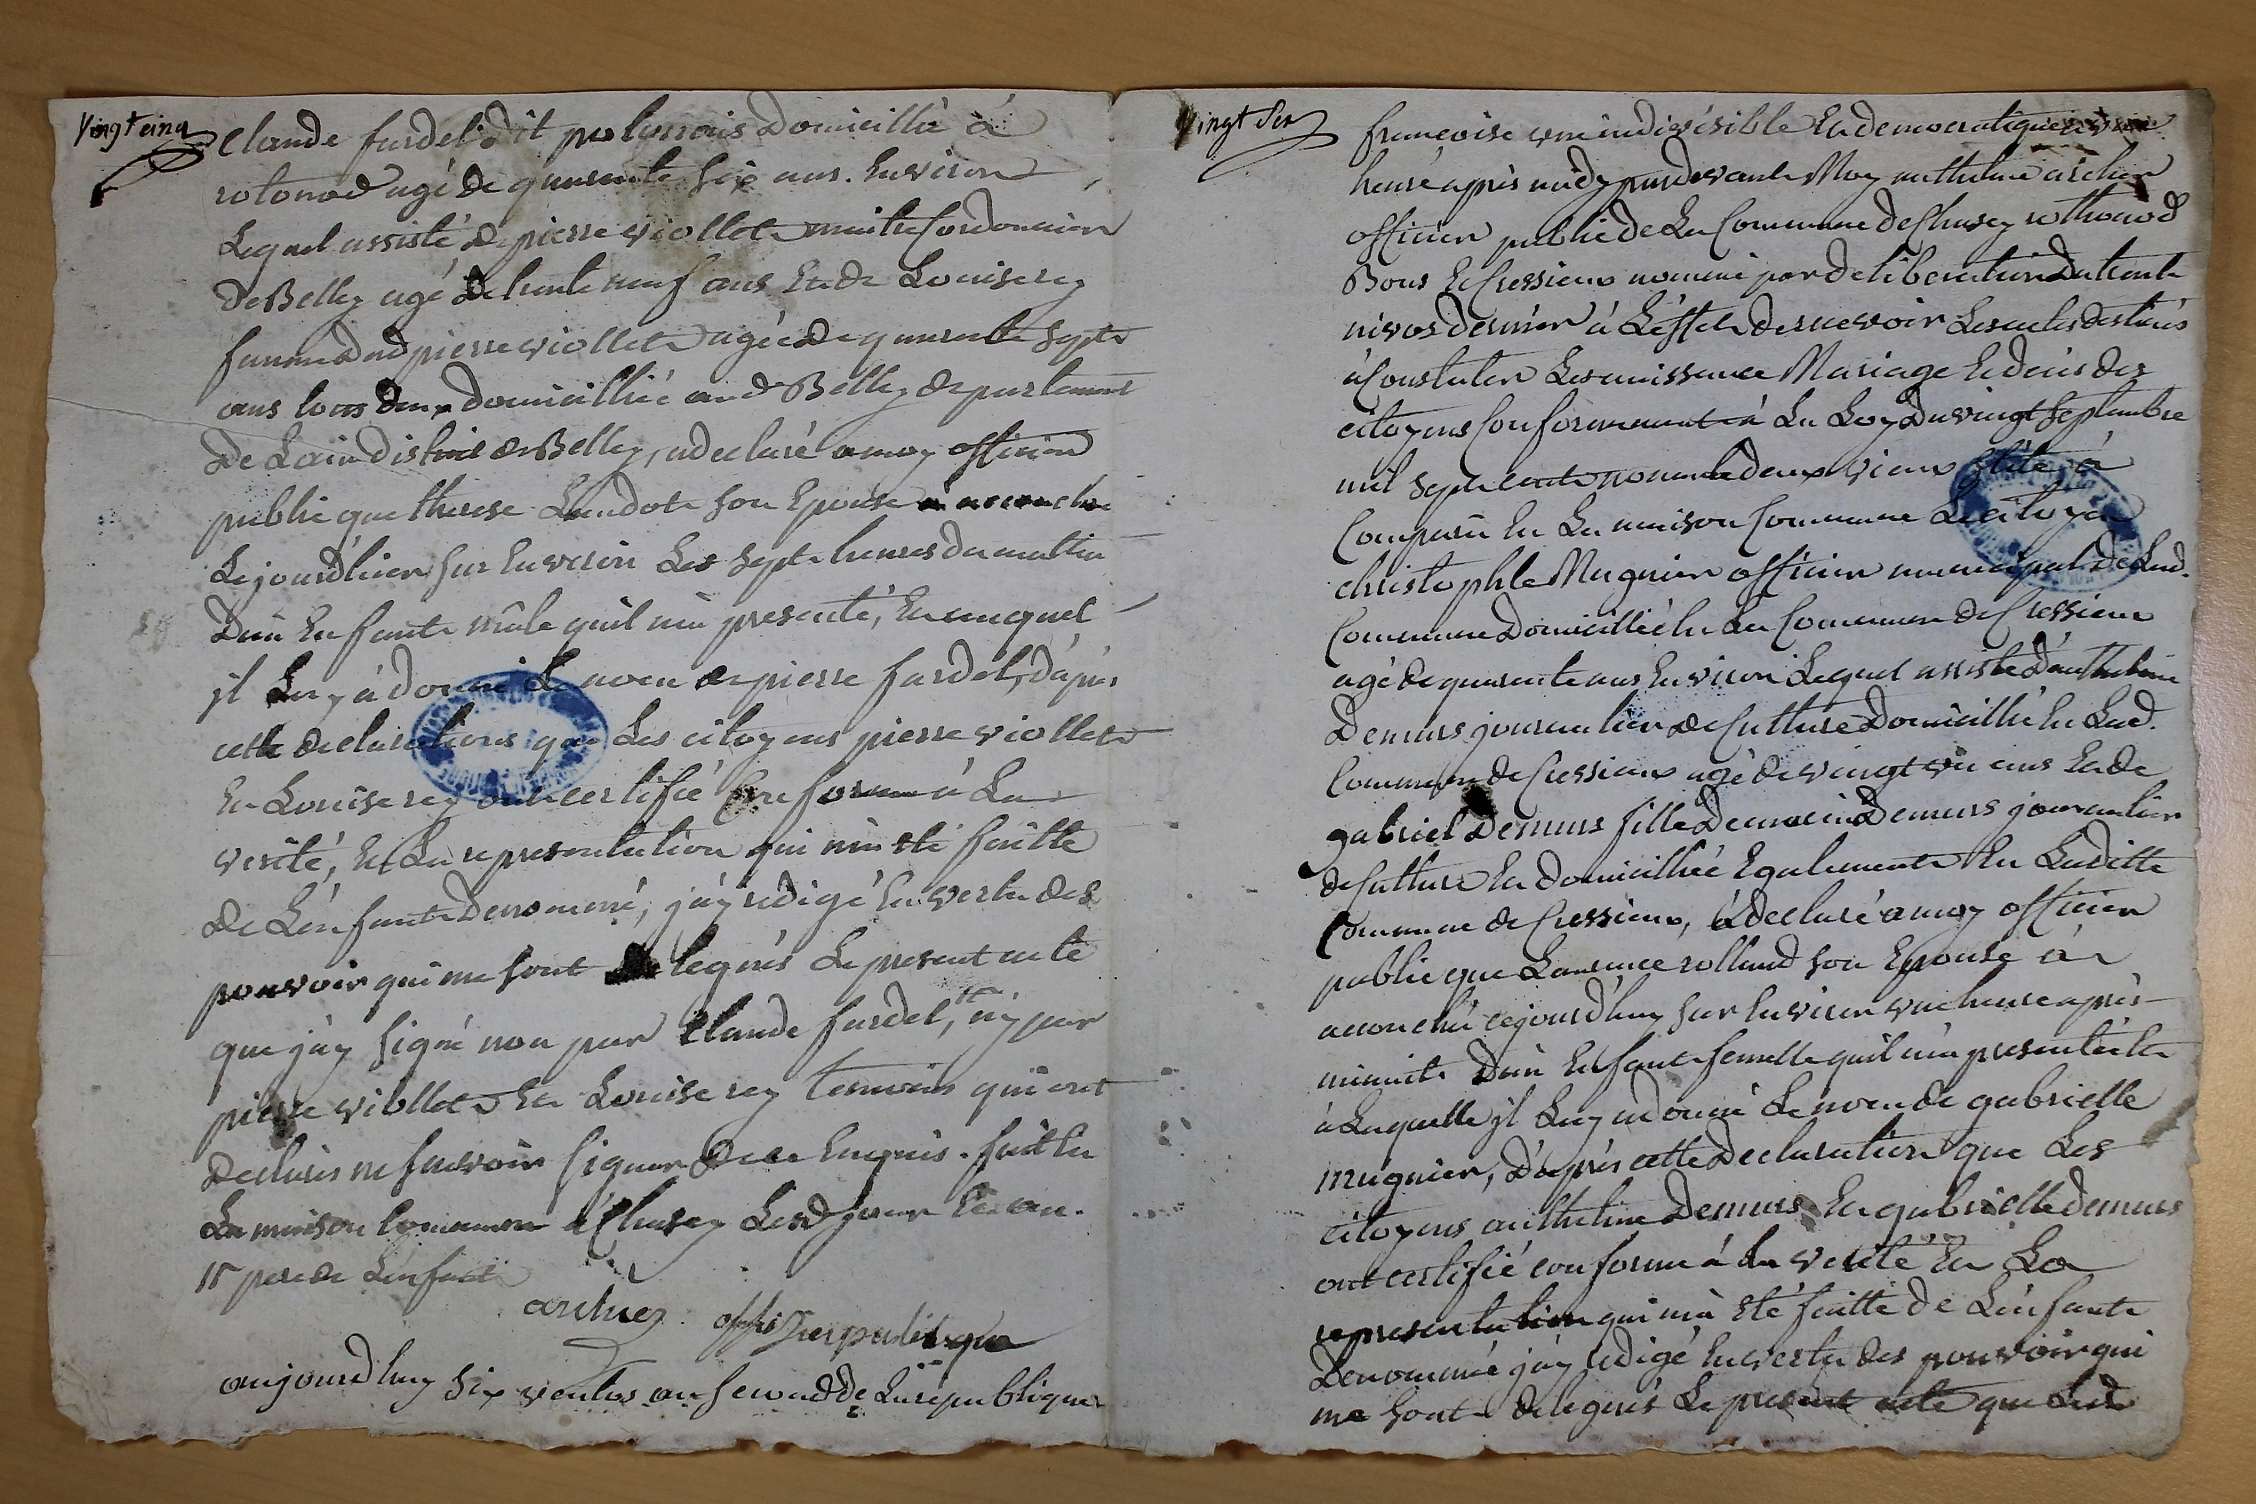 Vingt cinq
Claude fardel dit polonois Domicillié á
rotonod agé de quarente Six ans. Environ
Lequel assisté de pierre viollet maitre Cordonnier
de Belley agé de trente neuf ans Et de Louise rey
famme dud pierre viollet agée de quarente Sept
ans tous deux domicilliée aud Belley departement
De Lain District de Belley, a declaré a moy officier
public que therese Landot Son Epouse a accouché
Le jourd'hier sur Environ Les Sept heures du matin
Dun Enfant mâle quil m'a presenté, Et auquel
jl Luy á donné Le nom de pierre fardel, d'apres
cette declarations que Les citoyens pierre viollet
Et Louise rey ont certifié Conforme á La
verité, Et La representation qui m'a eté faitte
de L'enfant Denommé, j'ay redigé En vertu des
pouvoir qui me sont delegués Le present acte
que j'ay Signé non par Claude fardel, ny par
pierre viollet Et Louise rey temoins qui ont
declarés ne Sçavoir Signer de ce Enquis. fait En
La maison Commune á Chazey Lesd jour Et an.
pere de L'enfant
archer officier publique
aujourdhuy Six ventos an Second de La republique
Vingt Six
françoise une indivésible Et democratique a une
heure aprés midy pardevant Moy anthelme archer
officier public de La Commune de Chazey rothonod
Bons Et Cressieux nommé par deliberation du trente
nivos dernier á L'éffet de recevoir Les actes destinés
á Constater Les naissance Mariage Et decés des
citoyens Conformement á La Loy du vingt Septembre
mil Sept cent nonente deux vieux Stile á
Comparu En La maison Commune Le citoyen
christophle Mugnier officier municipal de Lad.
Commune Domicillié En La Commune de Cressieux
agé de quarente ans Environ Lequel assisté d'anthelme
Demurs journalier de Culture Domicillié En Lad.
Commune de Cressieux agé de vingt un ans Et de
gabriel Demurs fille De Demurs journalier
de Culture Et domicilliée Egalement En Laditte
Commune de Cressieux, á declaré a moy officier
public que Laurence rolland son Epouse á
accouché cejourd'huy Sur Environ une heure aprés
minuit Dun Enfant femelle quil m'a presenté Et
á Laquelle jl Luy á donné Le nom de gabrielle
mugnier, D'aprés cette Declaration que Les
citoyens anthelme Demurs Et gabrielle demurs
ont certifié conforme á La verité Et La
representation qui m'a eté faitte de L'enfant
Denommée j'ay redigé En vertu des pouvoir qui
me sont delegués Le present acte que Led